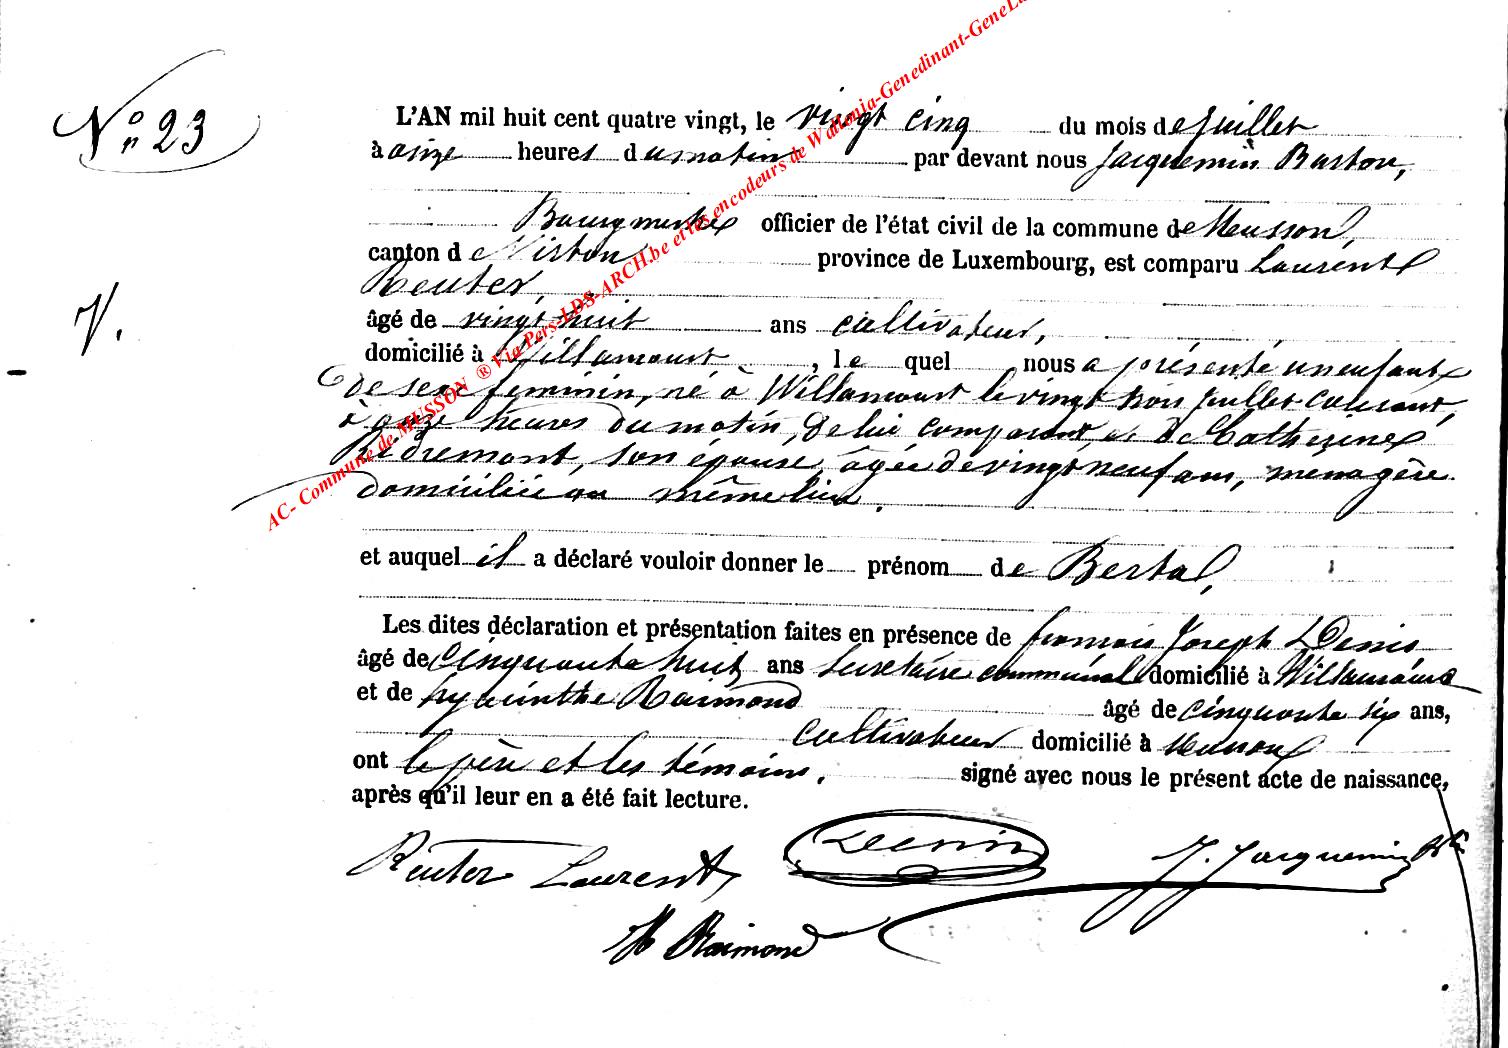 N° 23
L'AN mil huit cent quatre vingt, le vingt cinq du mois de juillet
à onze heures du matin par devant nous Jacquemin Baston,
Bourgmestre officier de l'état civil de la commune de Musson,
canton de Virton province de Luxembourg, est comparu Laurent
Reuter,
âgé de vingt huit ans cultivateur,
V.
domicilié à Willancourt, lequel nous a présenté un enfant
de sexe feminin, né à Willancourt le vingt trois juillet courant,
à onze heures du matin, de lui comparant et de Catherine
son épouse, âgée de vingt neuf ans, menagère
domiciliée au même lieu.
et auquel il a déclaré vouloir donner le prénom de
Les dites déclaration et présentation faites en présence de françois Joseph Denis
âgé de cinquante huit ans secretaire communal domicilié à Willancourt
et de hyacinthe Raimond âgé de cinquante six ans,
cultivateur domicilié à Musson
ont le père et les témoins, signé avec nous le présent acte de naissance,
après qu'il leur en a été fait lecture.
Reuter Laurent Denis J. Jacquemin
H Raimond
AC- Commune de MUSSON ® Via Pers-LDS-ARCH.be et les encodeurs de Wallonia-Genedinant-